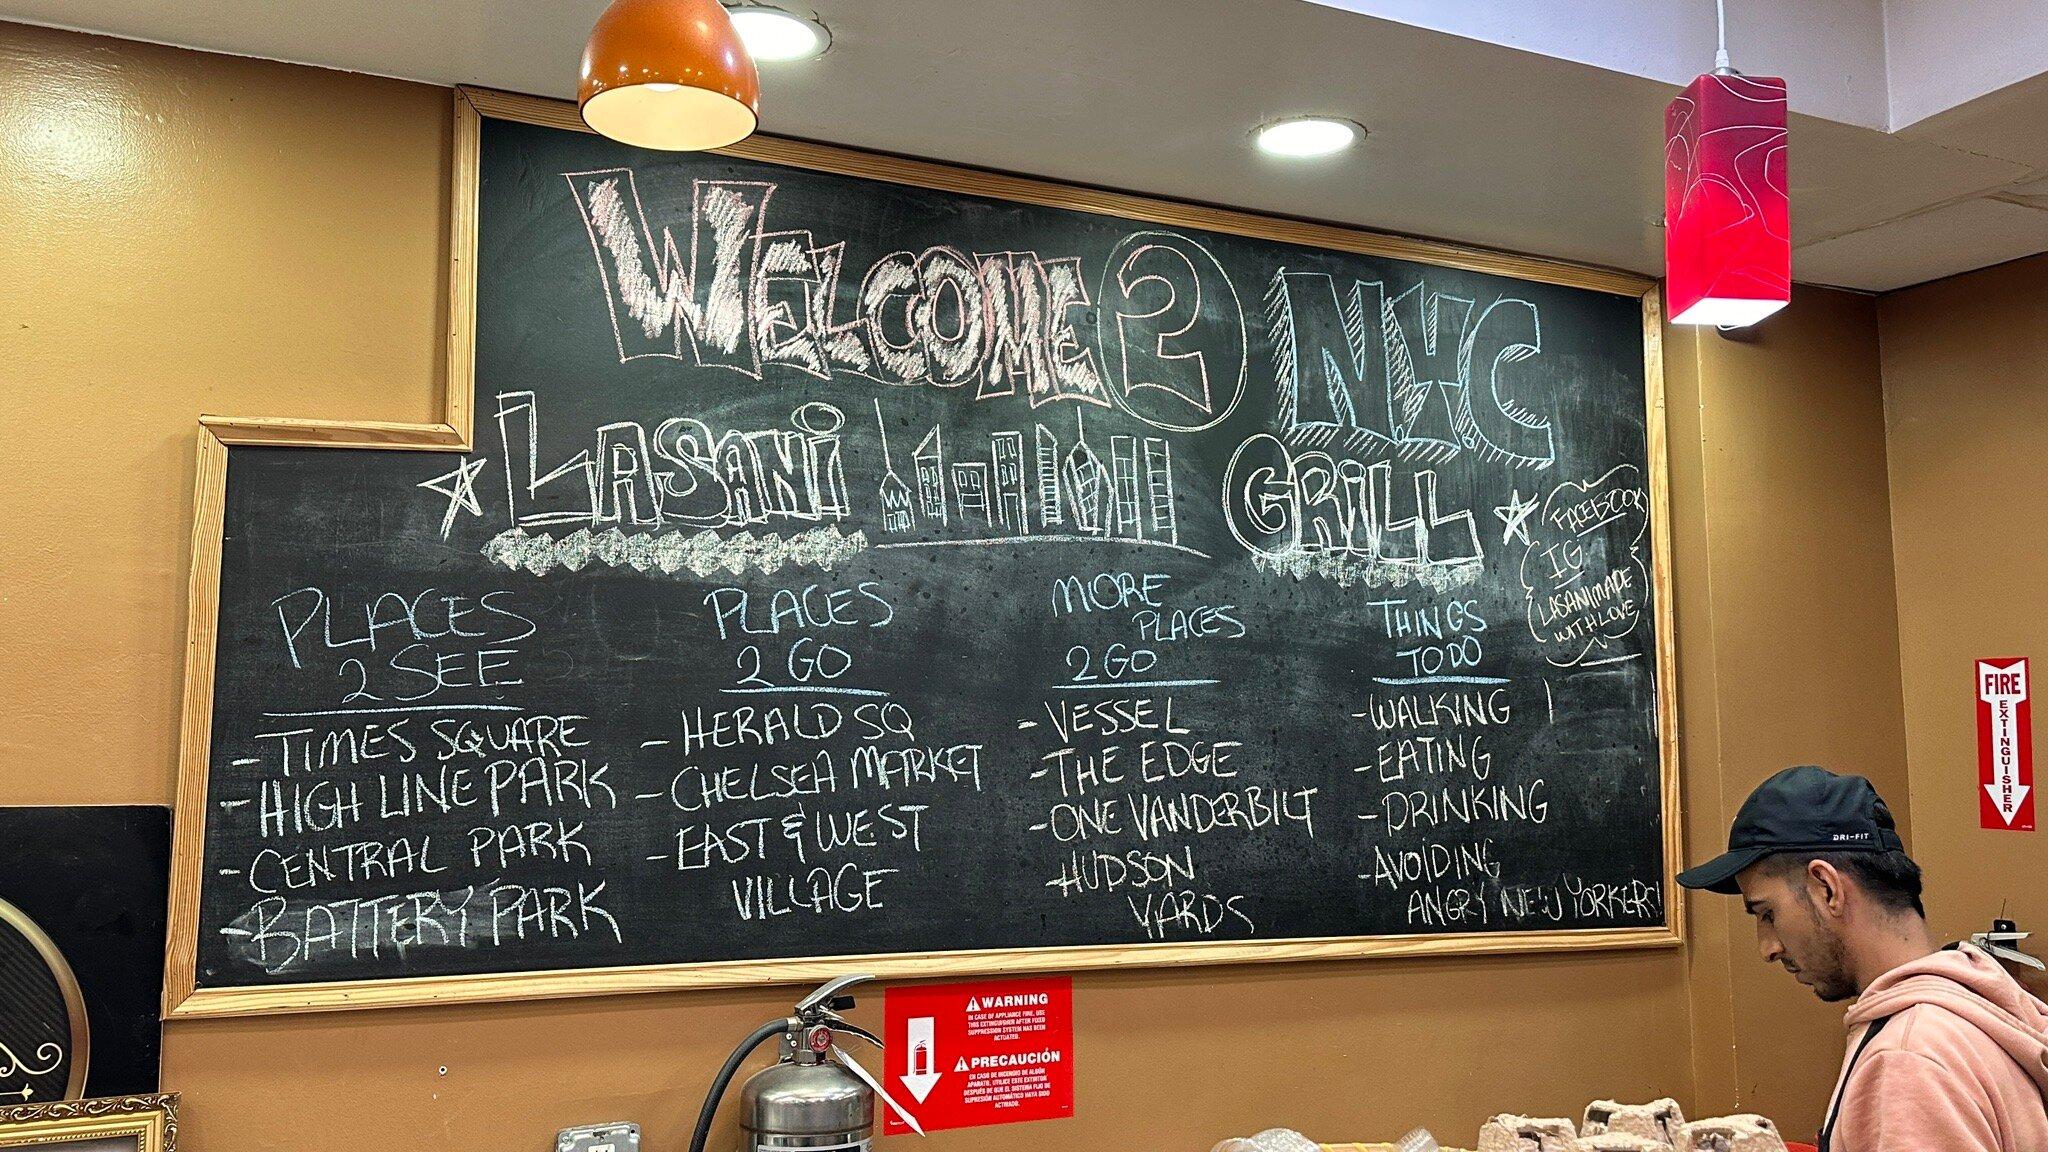 WELCOME 2 N.Y.C
LASANI GRILL
FACEBOOK
IG
LASANIMADE
WITHLOVE
PLACES
2 SEE
- TIMES SQUARE
- HIGH LINE PARK
- CENTRAL PARK
- BATTERY PARK
PLACES
2 GO
- HERALD SQ
- CHELSEA MARKET
- EAST & WEST
VILLAGE
MORE
PLACES
2 GO
- VESSEL
- THE EDGE
- ONE VANDERBILT
- HUDSON
YARDS
THINGS
TO DO
- WALKING
- EATING
- DRINKING
- AVOIDING
ANGRY NEW YORKERS!
FIRE
EXTINGUISHER
DRI-FIT
WARNING
IN CASE OF APPLIANCE FIRE, USE
THIS EXTINGUISHER AFTER FIXED
SUPPRESSION SYSTEM HAS BEEN
ACTUATED.
PRECAUCIÓN
EN CASO DE INCENDIO DE ALGÚN
APARATO, UTILICE ESTE EXTINTOR
DESPUÉS DE QUE EL SISTEMA FIJO DE
SUPRESIÓN AUTOMÁTICO HAYA SIDO
ACTIVADO.